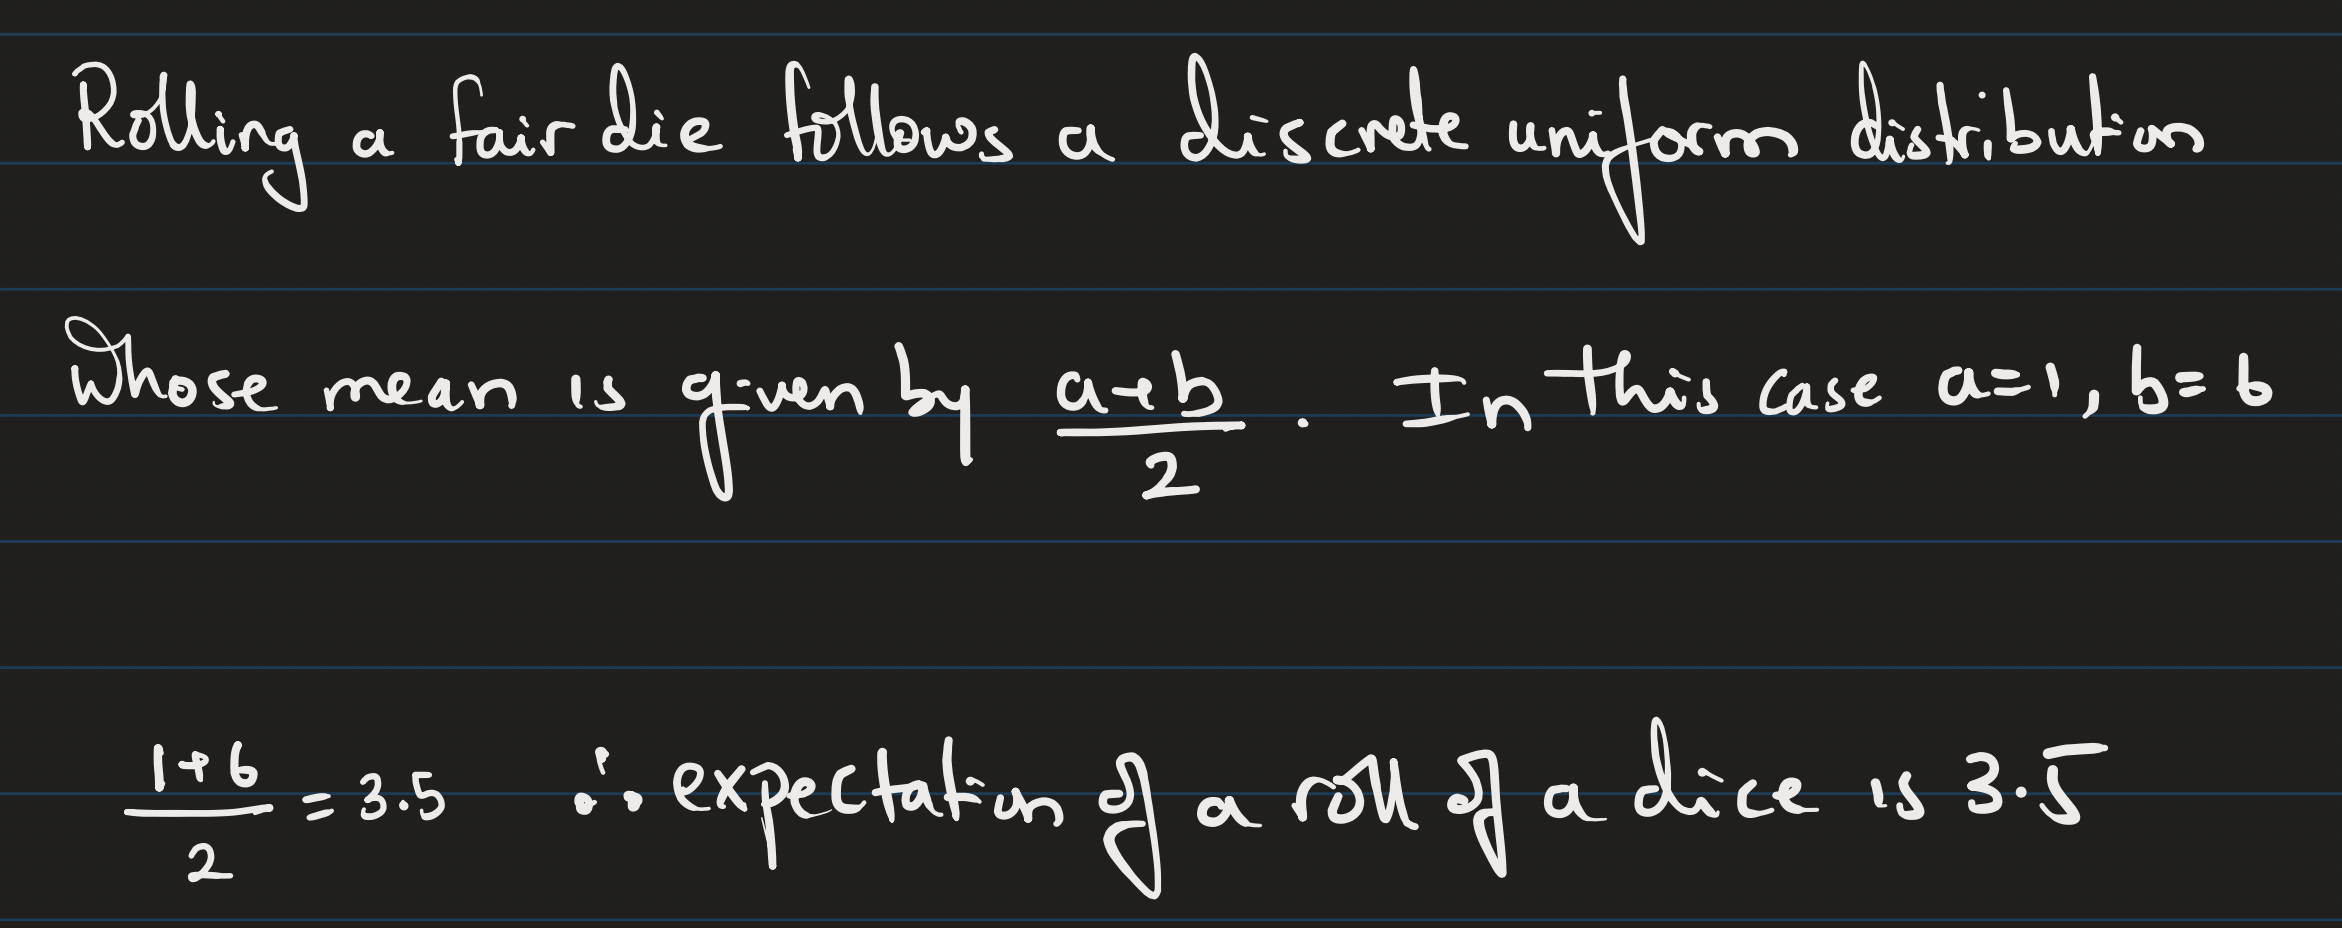 Rolling a fair die follows a discrete uniform distribution
whose mean is given by (a+b)/2 . In this case a=1, b=6
(1+6)/2 = 3.5 ∴ expectation of a roll of a dice is 3.5